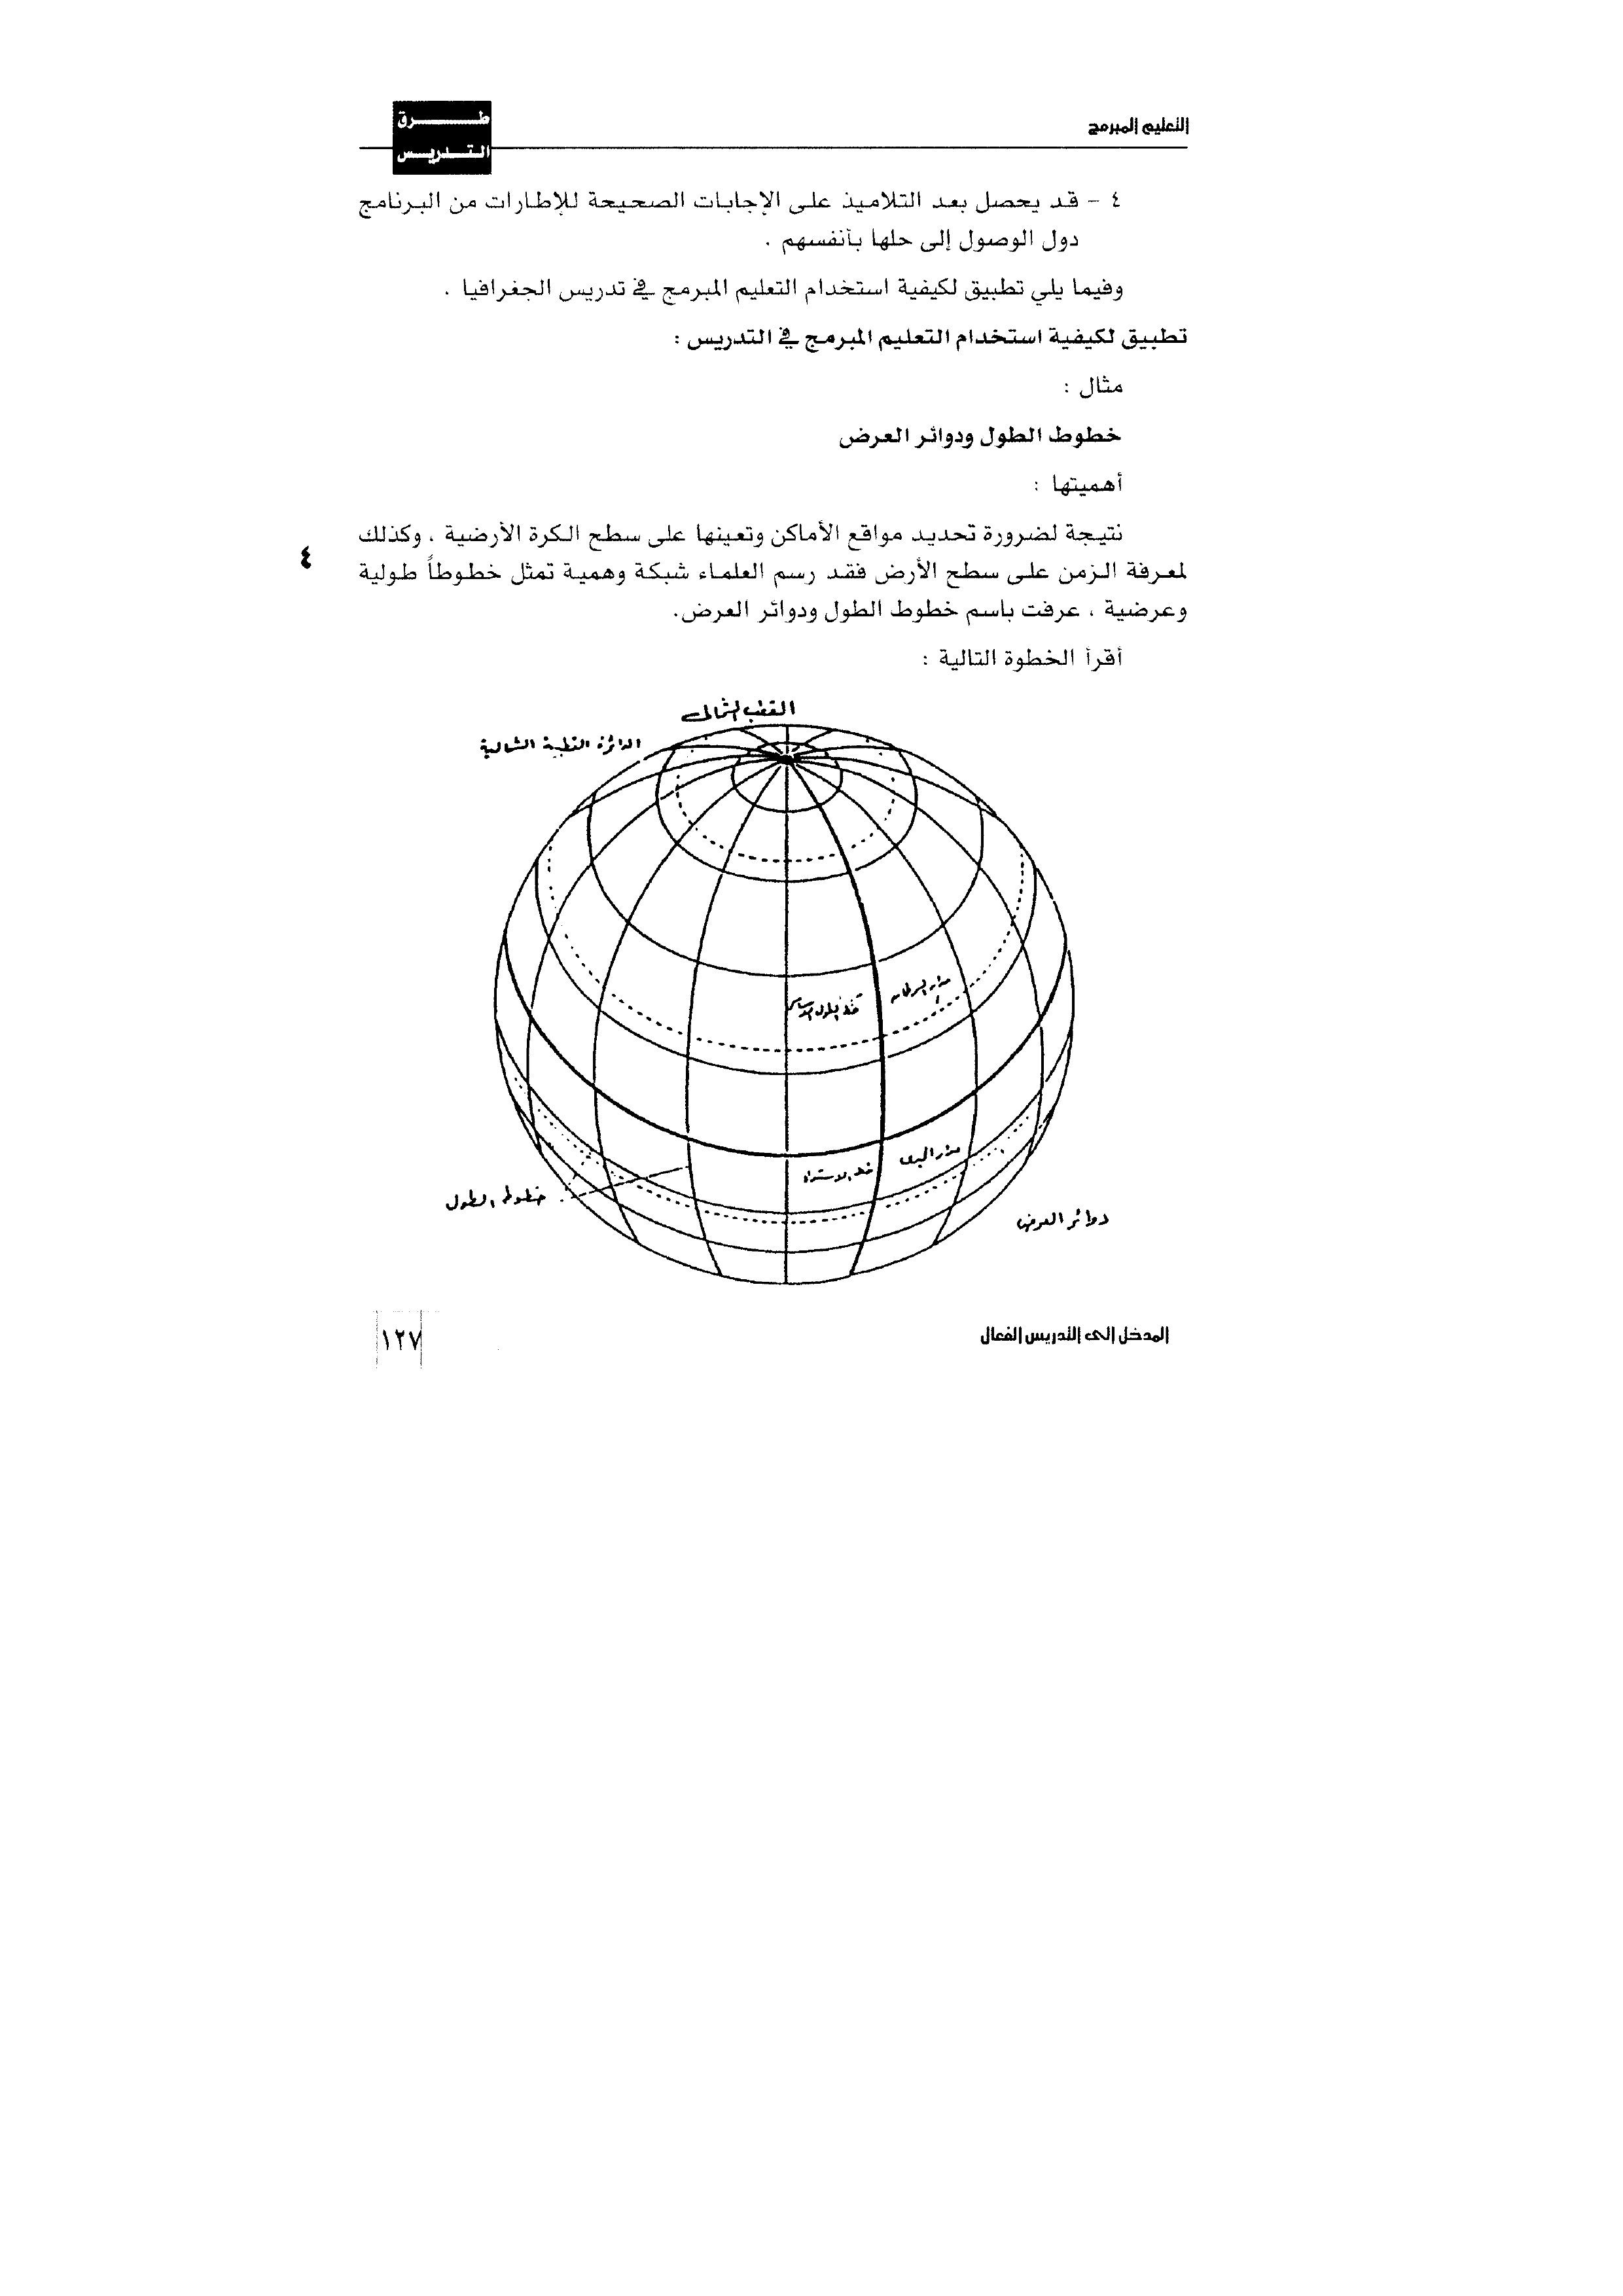 التعليم المبرمج
طرق
التدريس
٤ - قد يحصل بعد التلاميذ على الإجابات الصحيحة للإطارات من البرنامج
دول الوصول إلى حلها بأنفسهم .
وفيما يلي تطبيق لكيفية استخدام التعليم المبرمج في تدريس الجغرافيا .
تطبيق لكيفية استخدام التعليم المبرمج في التدريس :
مثال :
خطوط الطول ودوائر العرض
أهميتها :
نتيجة لضرورة تحديد مواقع الأماكن وتعينها على سطح الكرة الأرضية ، وكذلك
لمعرفة الزمن على سطح الأرض فقد رسم العلماء شبكة وهمية تمثل خطوطاً طولية
٤
وعرضية ، عرفت باسم خطوط الطول ودوائر العرض.
أقرأ الخطوة التالية :
القطب الشمالى
الدائرة القطبية الشمالية
مدار السرطان
خط الطول الاساسى
مدار الجدى
خط الاستواء
خطوط الطول
دوائر العرض
المدخل إلى التدريس الفعال
١٢٧